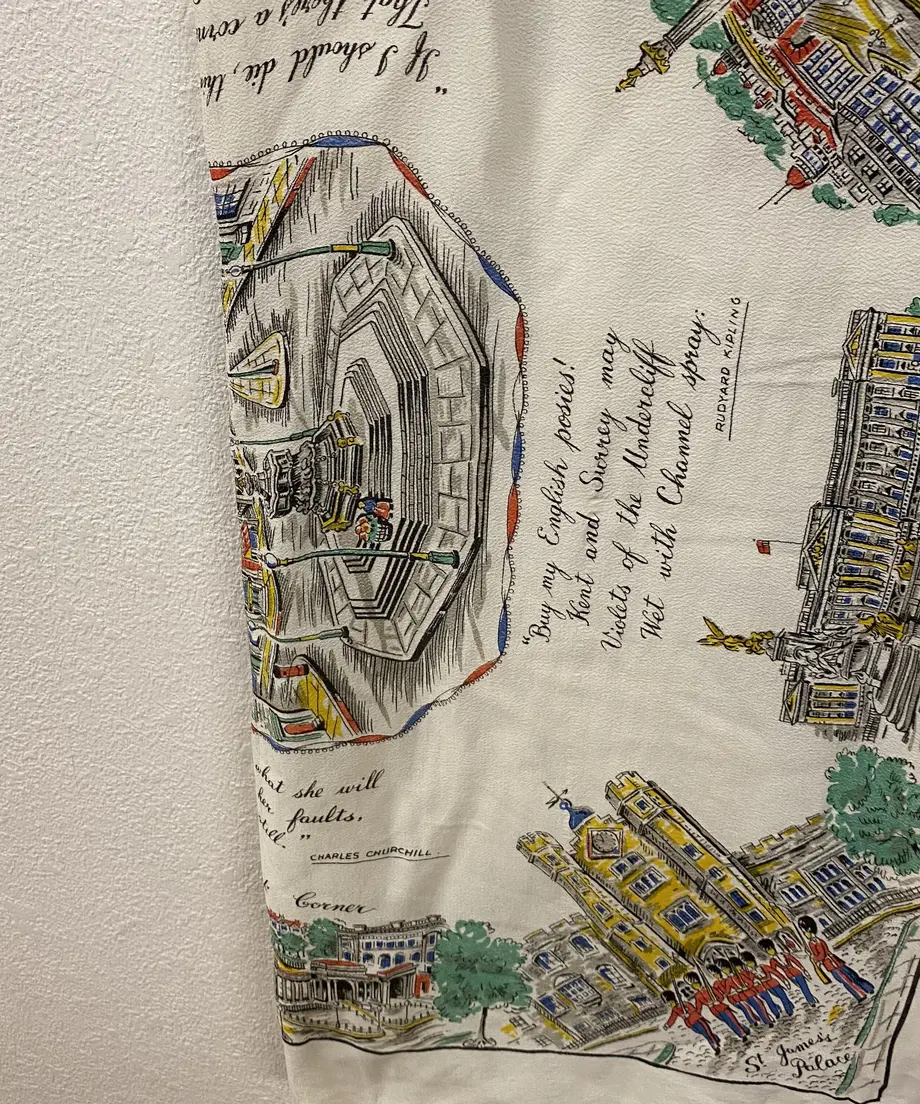 "If I should die, thin
That there's a corn
"Buy my English posies!
Kent and Surrey may
Violets of the Undercliff
Wet with Channel spray:
RUDYARD KIPLING
what she will
her faults,
still."
CHARLES CHURCHILL.
Corner
St James's
Palace